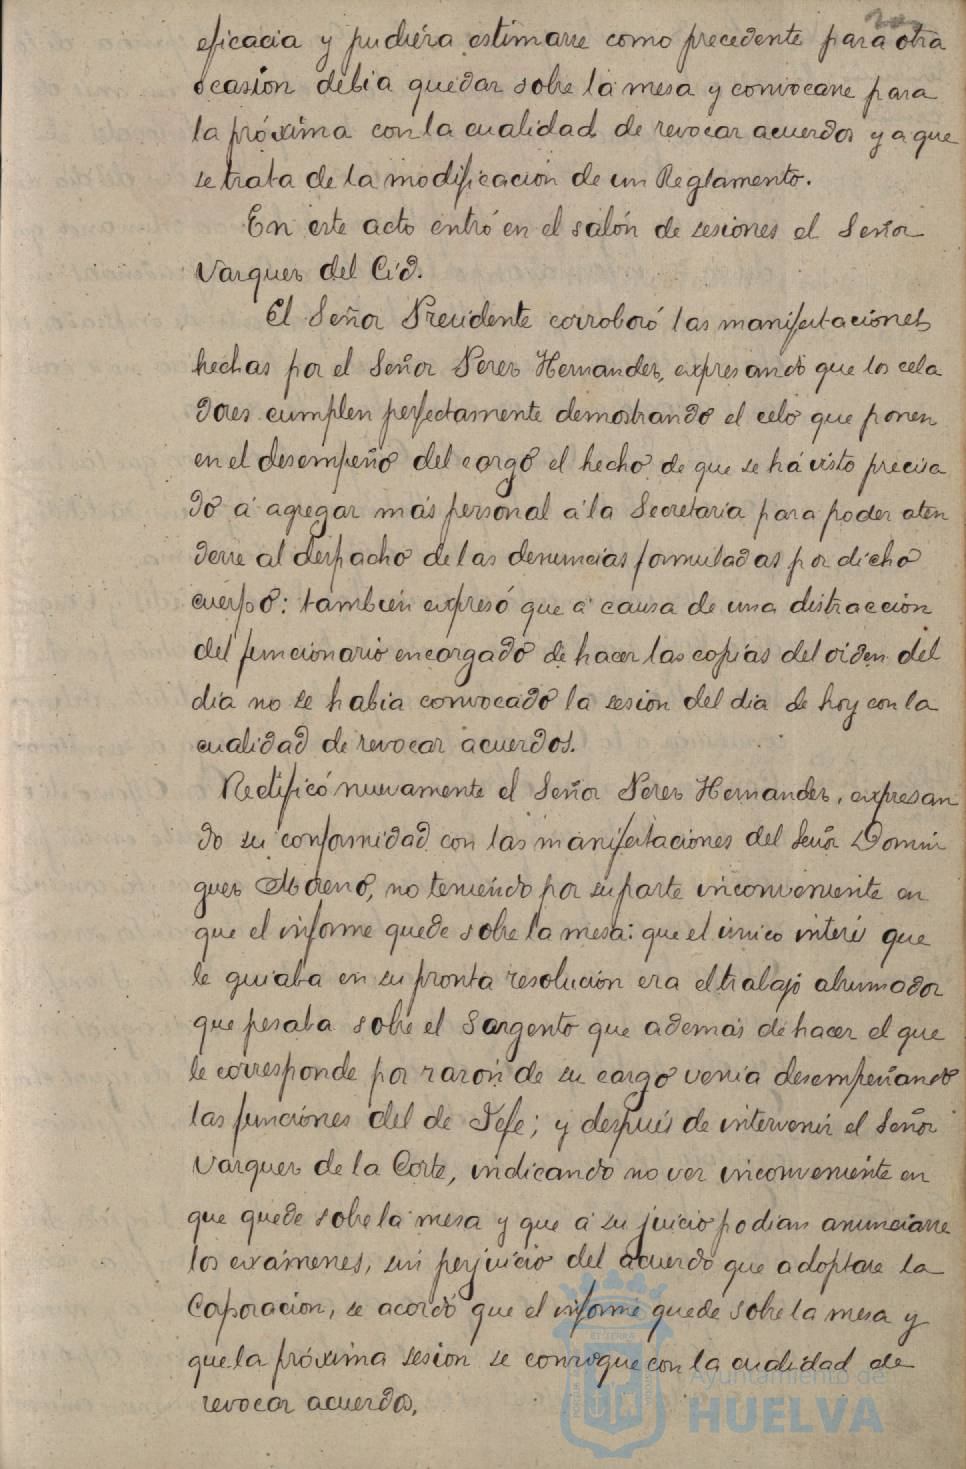 eficacia y pudiéra estimarse como precedente para otra
ocasión debia quedar sobre la mesa y convocarse para
la próxima con la cualidad de revocar acuerdos y a que
se trata de la modificación de un Reglamento.
En este acto entró en el salón de sesiones el Señor
Vazquez del Cid.
El Señor Presidente corroboró las manifestaciones
hechas por el Señor Perez Hernandez, expresando que los cela
dores cumplen perfectamente demostrando el celo que ponen
en el desempeño del cargo el hecho de que se há visto precisa
do á agregar más personal á la Secretaría para poder aten
derse al despacho de las denuncias formuladas por dicho
cuerpo: también expresó que á causa de una distracción
del funcionario encargado de hacer las copias del orden del
día no se habia convocado la sesion del dia de hoy con la
cualidad de revocar acuerdos.
Rectificó nuevamente el Señor Perez Hernandez, expresan
do su conformidad con las manifestaciones del Señor Domin
guez Moreno, no teniendo por su parte inconveniente en
que el informe quede sobre la mesa: que el único interés que
le guiaba en su pronta resolución era el trabajo abrumador
que pesaba sobre el Sargento que además de hacer el que
le corresponde por razón de su cargo venía desempeñando
las funciones del de Jefe; y después de intervenir el Señor
Vazquez de la Corte, indicando no ver inconveniente en
que quede sobre la mesa y que á su juicio podían anunciarse
los exámenes, sin perjuicio del acuerdo que adoptase la
Corporación, se acordó que el informe quede sobre la mesa y
que la próxima sesion se convoque con la cualidad de
revocar acuerdos.
Ayuntamiento de
HUELVA